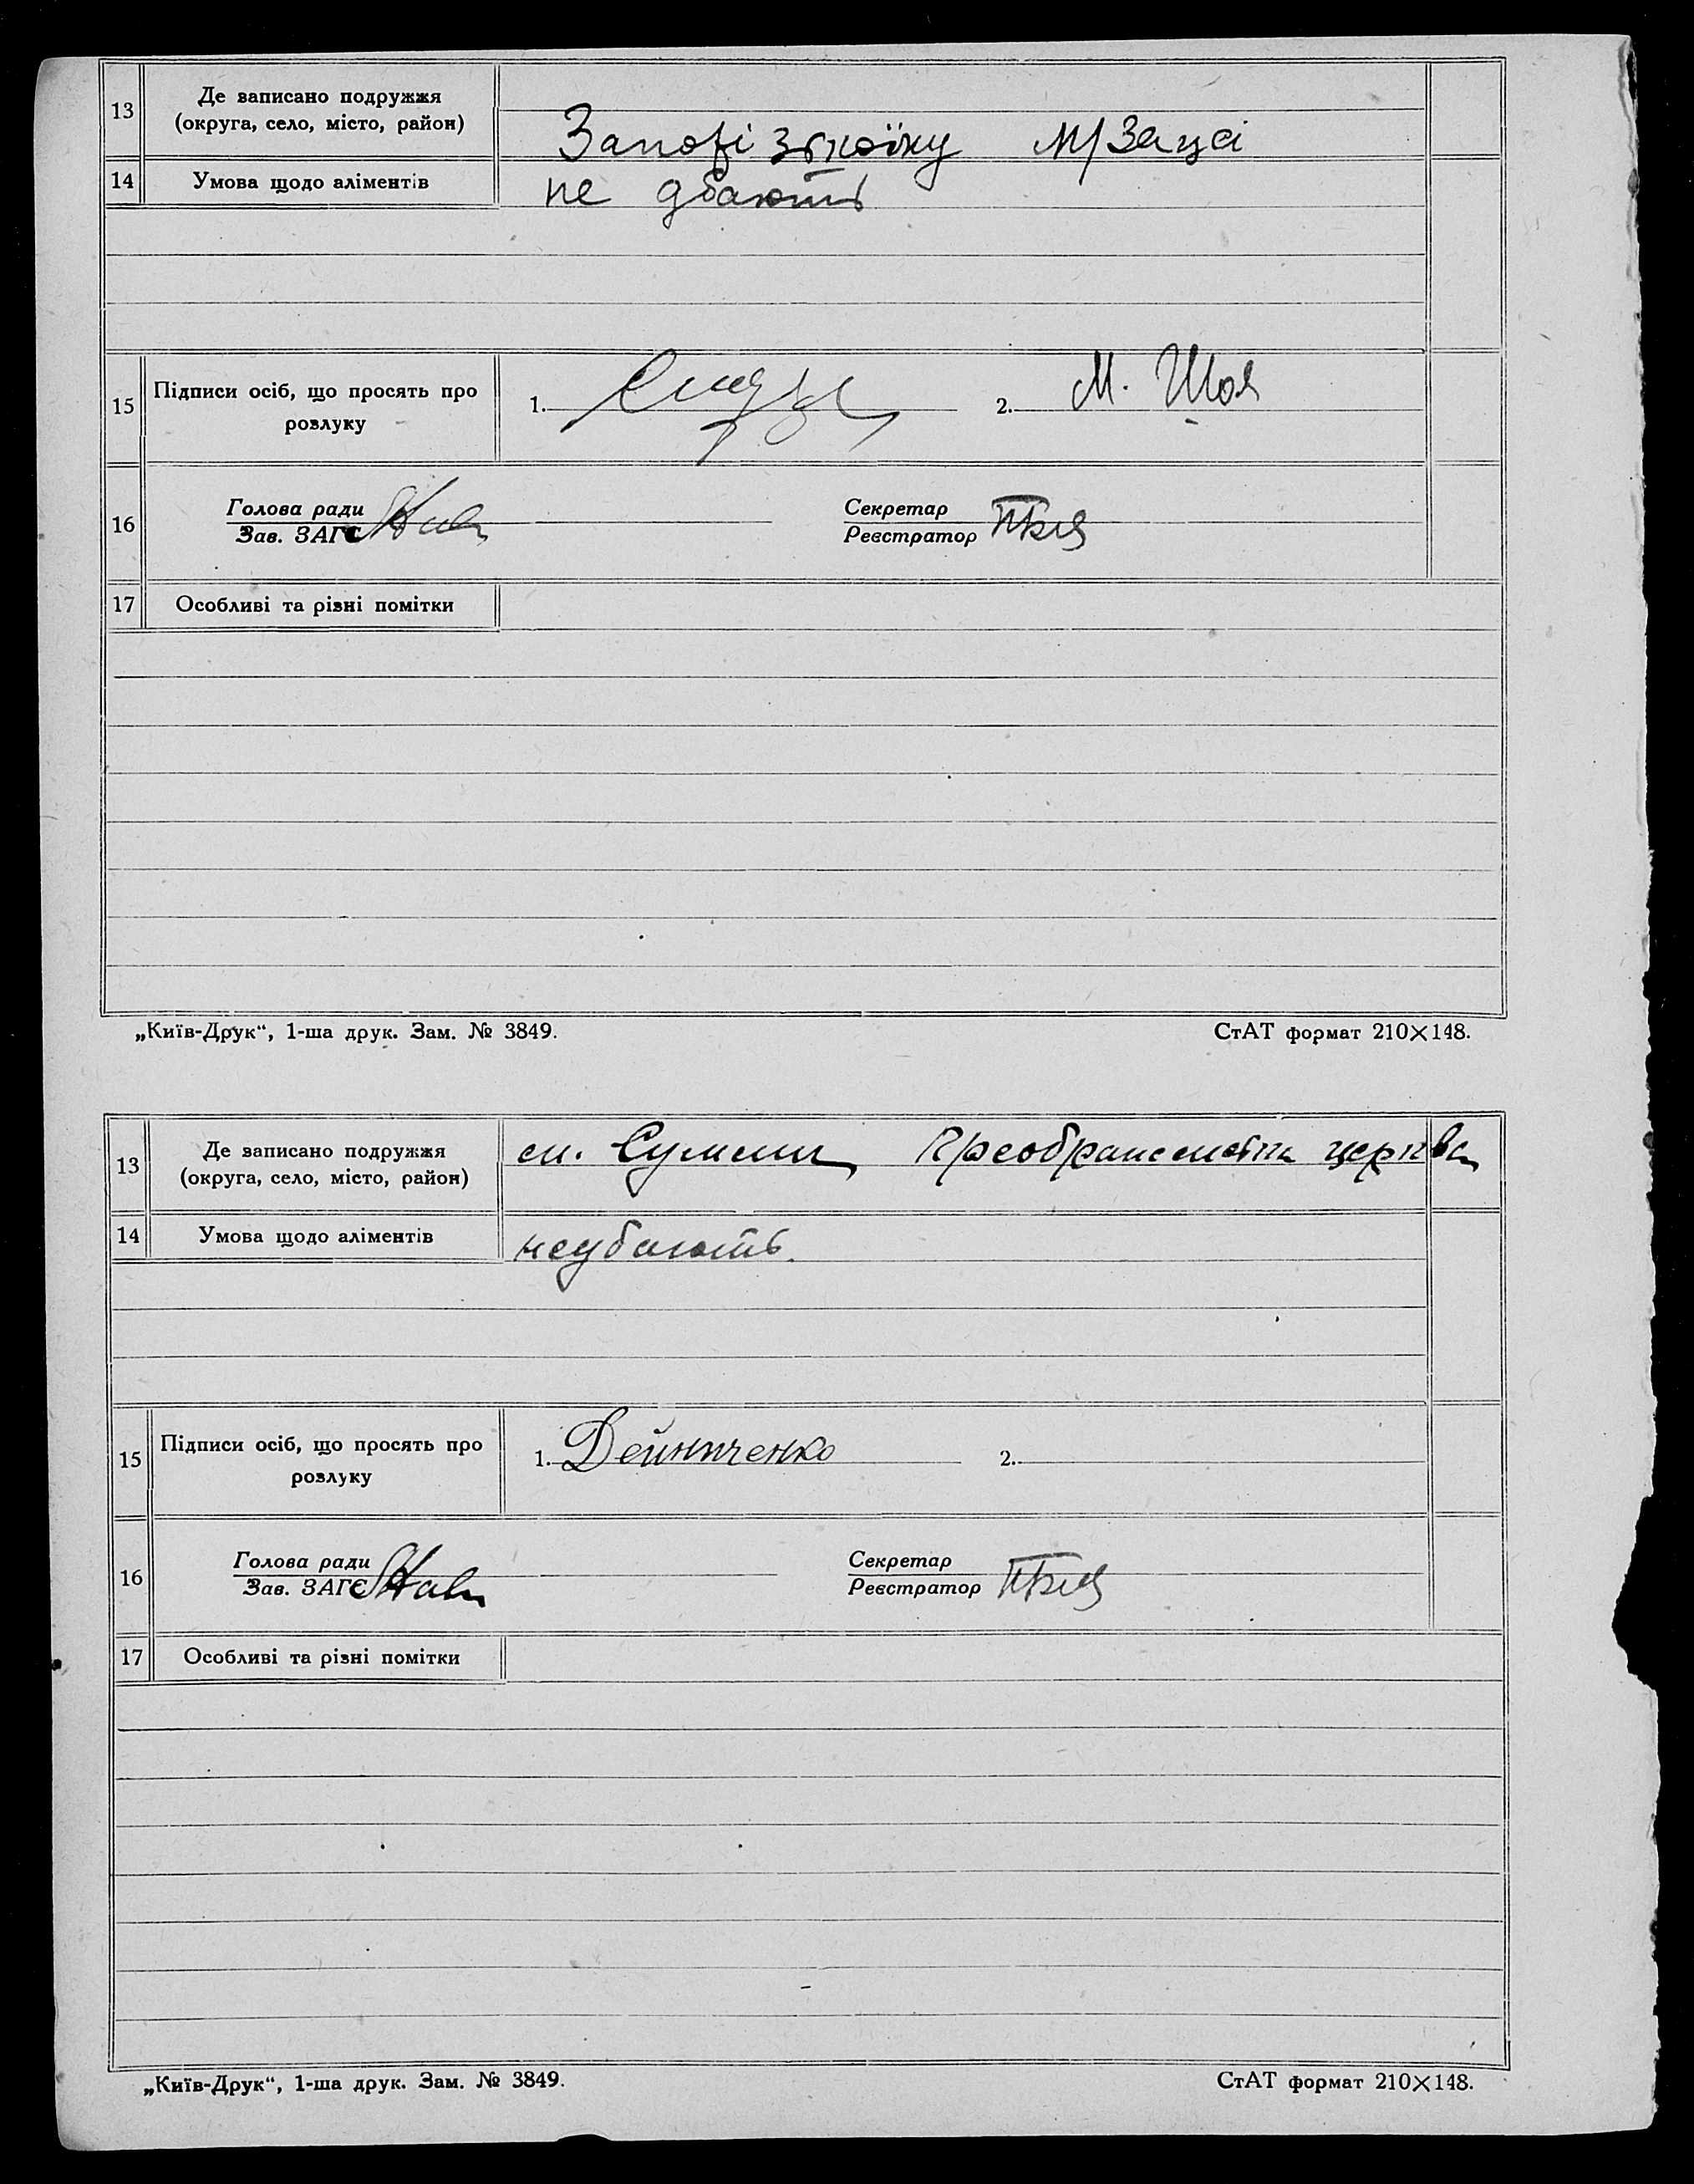 13
Де записано подружжя
(округа, село, місто, район)
14
Умова щодо аліментів
не дбають
15
Підписи осіб, що просять про
розлуку
1.
2. М. Шоя
16
Голова ради
Зав. ЗАГС
Секретар
Реєстратор
17
Особливі та різні помітки
„Київ-Друк“, 1-ша друк. Зам. № 3849.
СтАТ формат 210×148.
13
Де записано подружжя
(округа, село, місто, район)
церква
14
Умова щодо аліментів
недбають.
15
Підписи осіб, що просять про
розлуку
1. Дейниченко
2.
16
Голова ради
Зав. ЗАГС
Секретар
Реєстратор
17
Особливі та різні помітки
„Київ-Друк“, 1-ша друк. Зам. № 3849.
СтАТ формат 210×148.